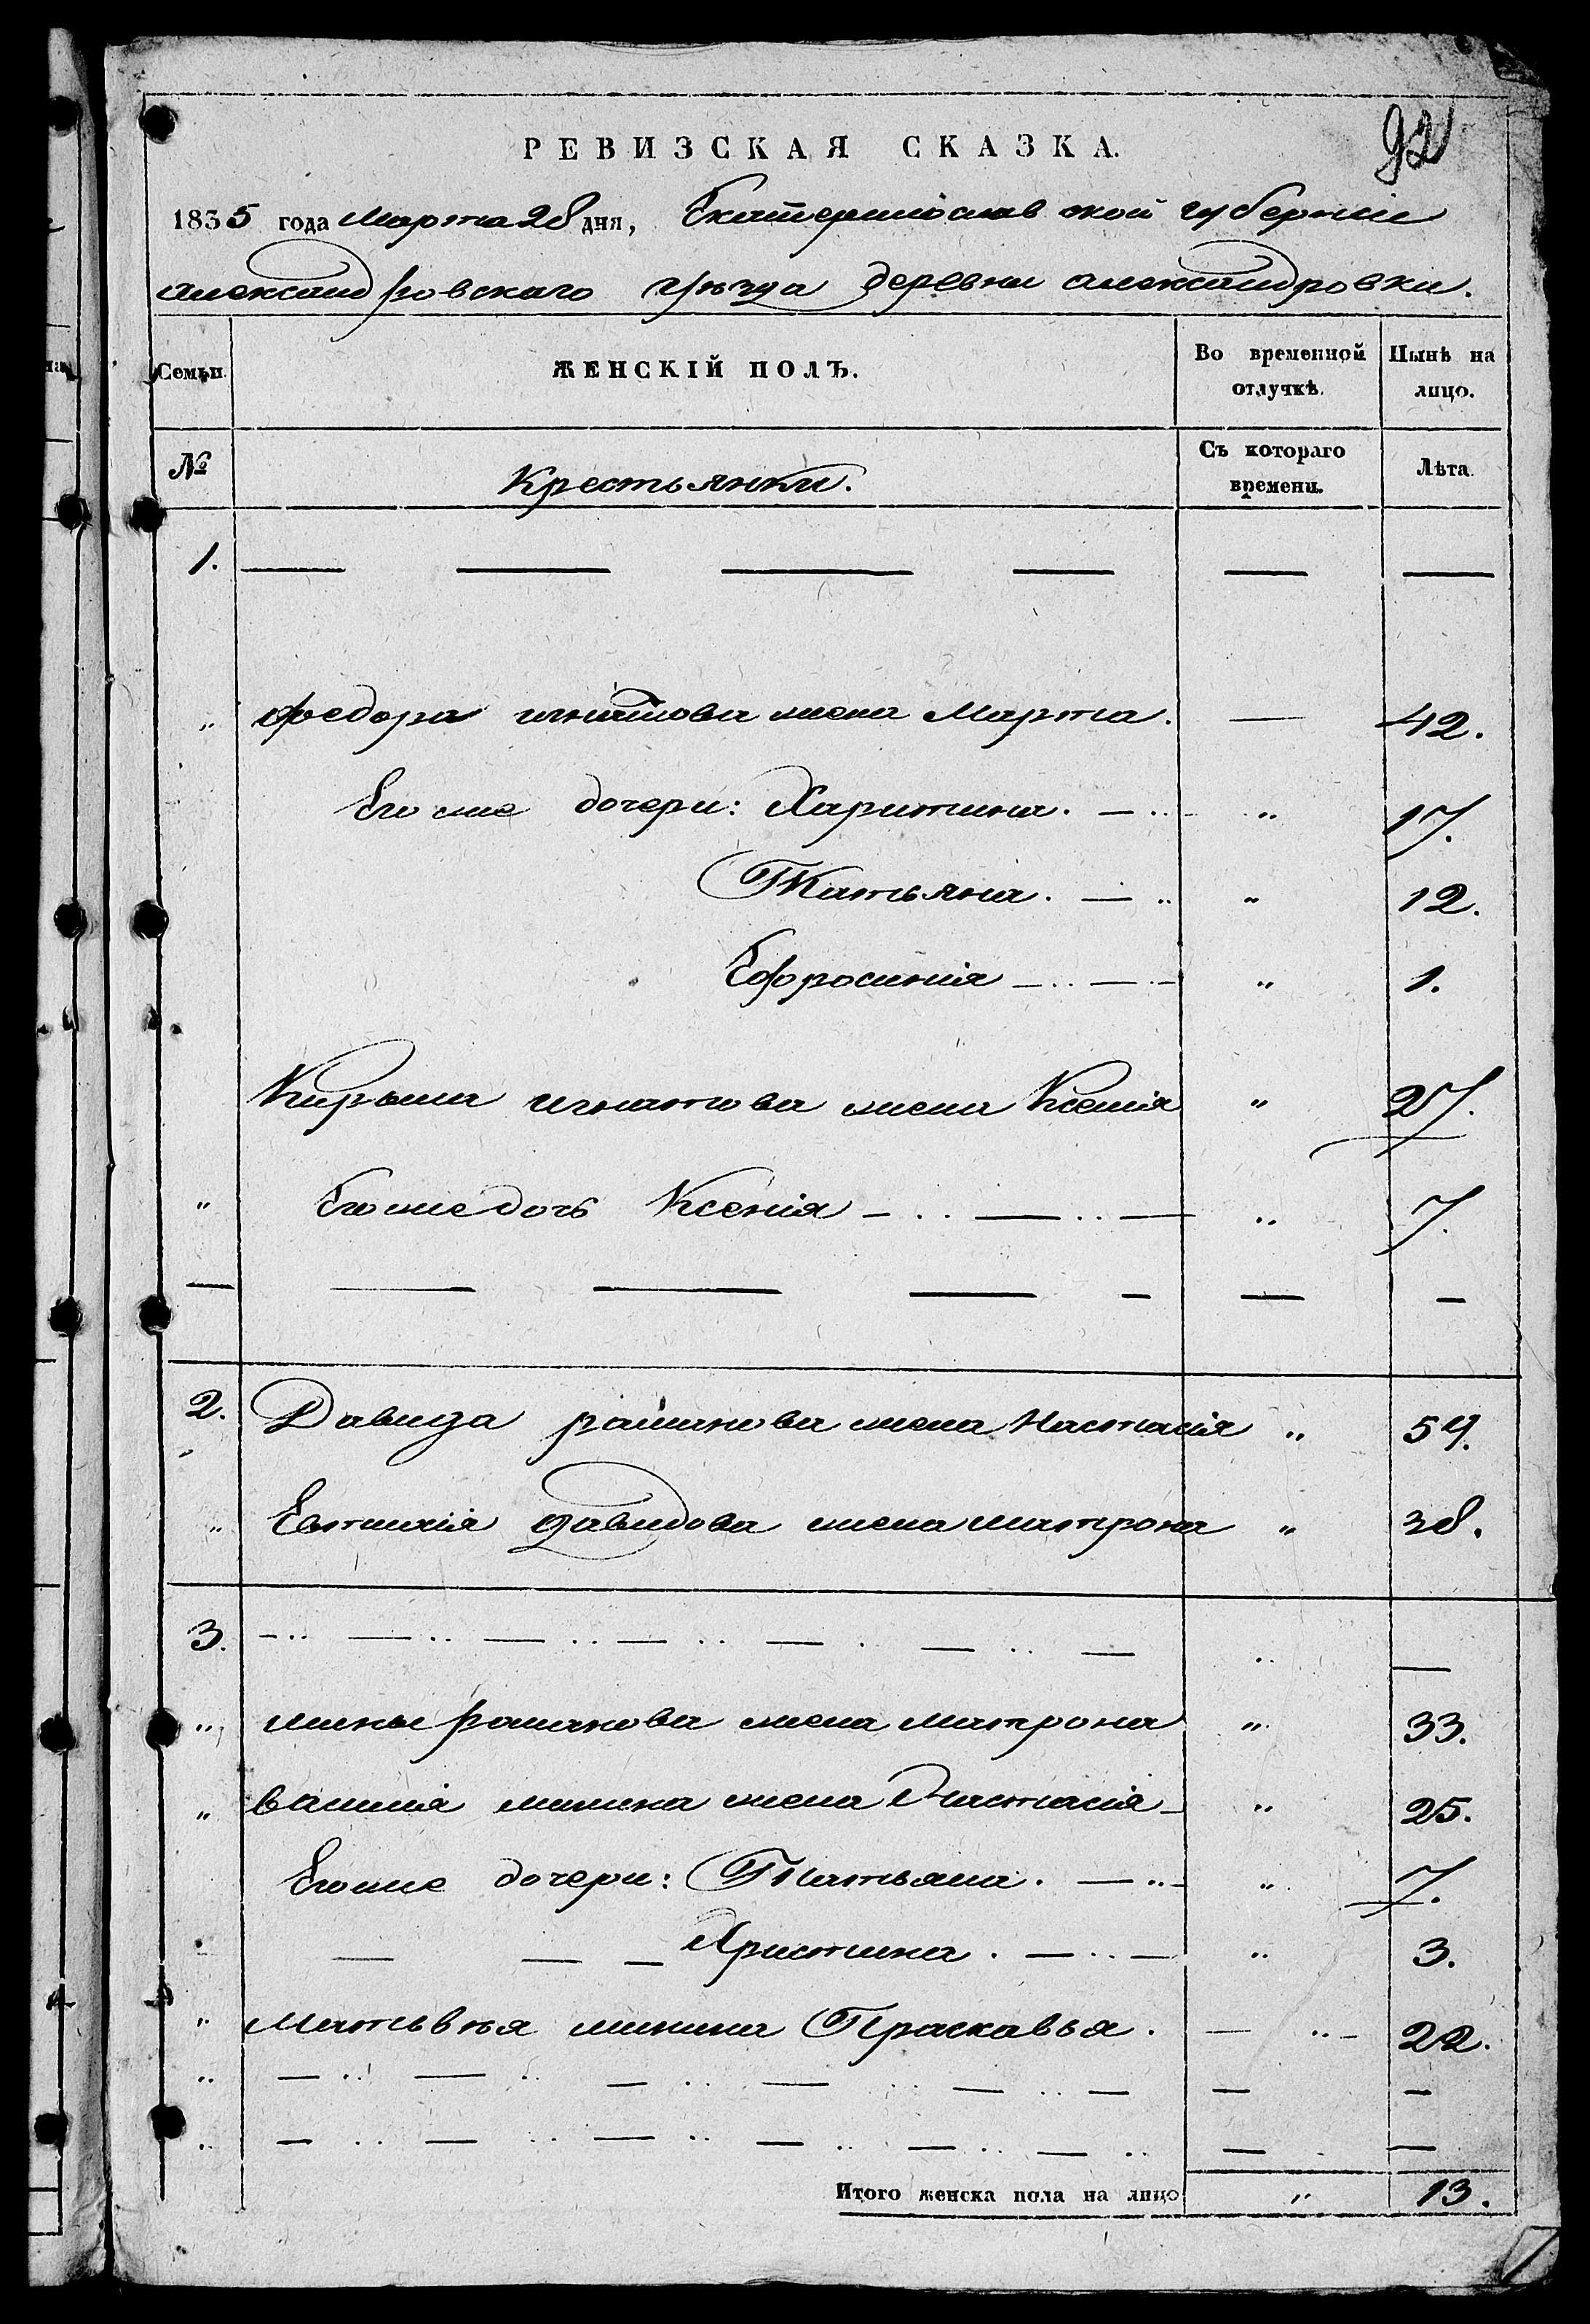 92
РЕВИЗСКАЯ СКАЗКА.
1835 года Марта 28 дня, Екатеринославской губерніи
Александровскаго уѣзда деревни Александровки.
Семьи. ЖЕНСКІЙ ПОЛЪ. Во временной отлучкѣ. Нынѣ на лицо.
№ Крестьянки. Съ котораго времени. Лѣта.
1. — — — — — —
„ Федора игнатова жена Марта. — 42.
Его же дочери: Харитина. — „ 17.
Татьяна. — „ 12.
Ефросинія — „ 1.
Кирыла игнатова жена Ксенія „ 27.
„ Его же дочь Ксенія — „ 7.
— — — — — — —
2. Давида романова жена Настасія „ 54.
„ Евтихія давидова жена матрона „ 38.
3. — — — — — — — „ —
„ мины романова жена матрона „ 33.
„ василія минина жена Настасія „ 25.
Его же дочери: Татьяна. — „ 7.
— — — Христина. — „ 3.
„ Матьвѣя минина Праскавья. — „ 22.
„ — „ — „ — „ — „ — „ — — —
„ — „ — „ — „ — „ — „ — „ — —
Итого женска пола на лицо „ 13.